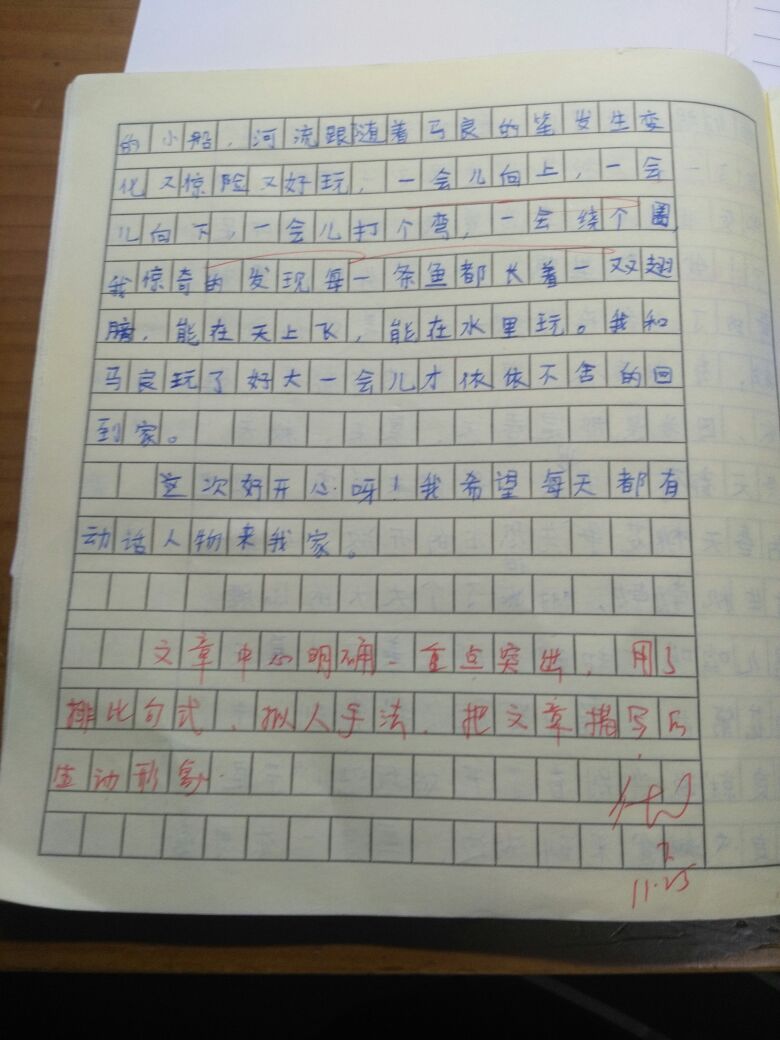 的小船，河流跟随着马良的笔发生变
化又惊险又好玩，一会儿向上，一会
儿向下，一会儿打个弯，一会绕个圈，
我惊奇的发现每一条鱼都长着一双翅
膀，能在天上飞，能在水里玩。我和
马良玩了好大一会儿才依依不舍的回
到家。
这次好开心呀！我希望每天都有
动话人物来我家。
文章中心明确、重点突出，用了
排比句式、拟人手法，把文章描写的
生动形象．
11.25